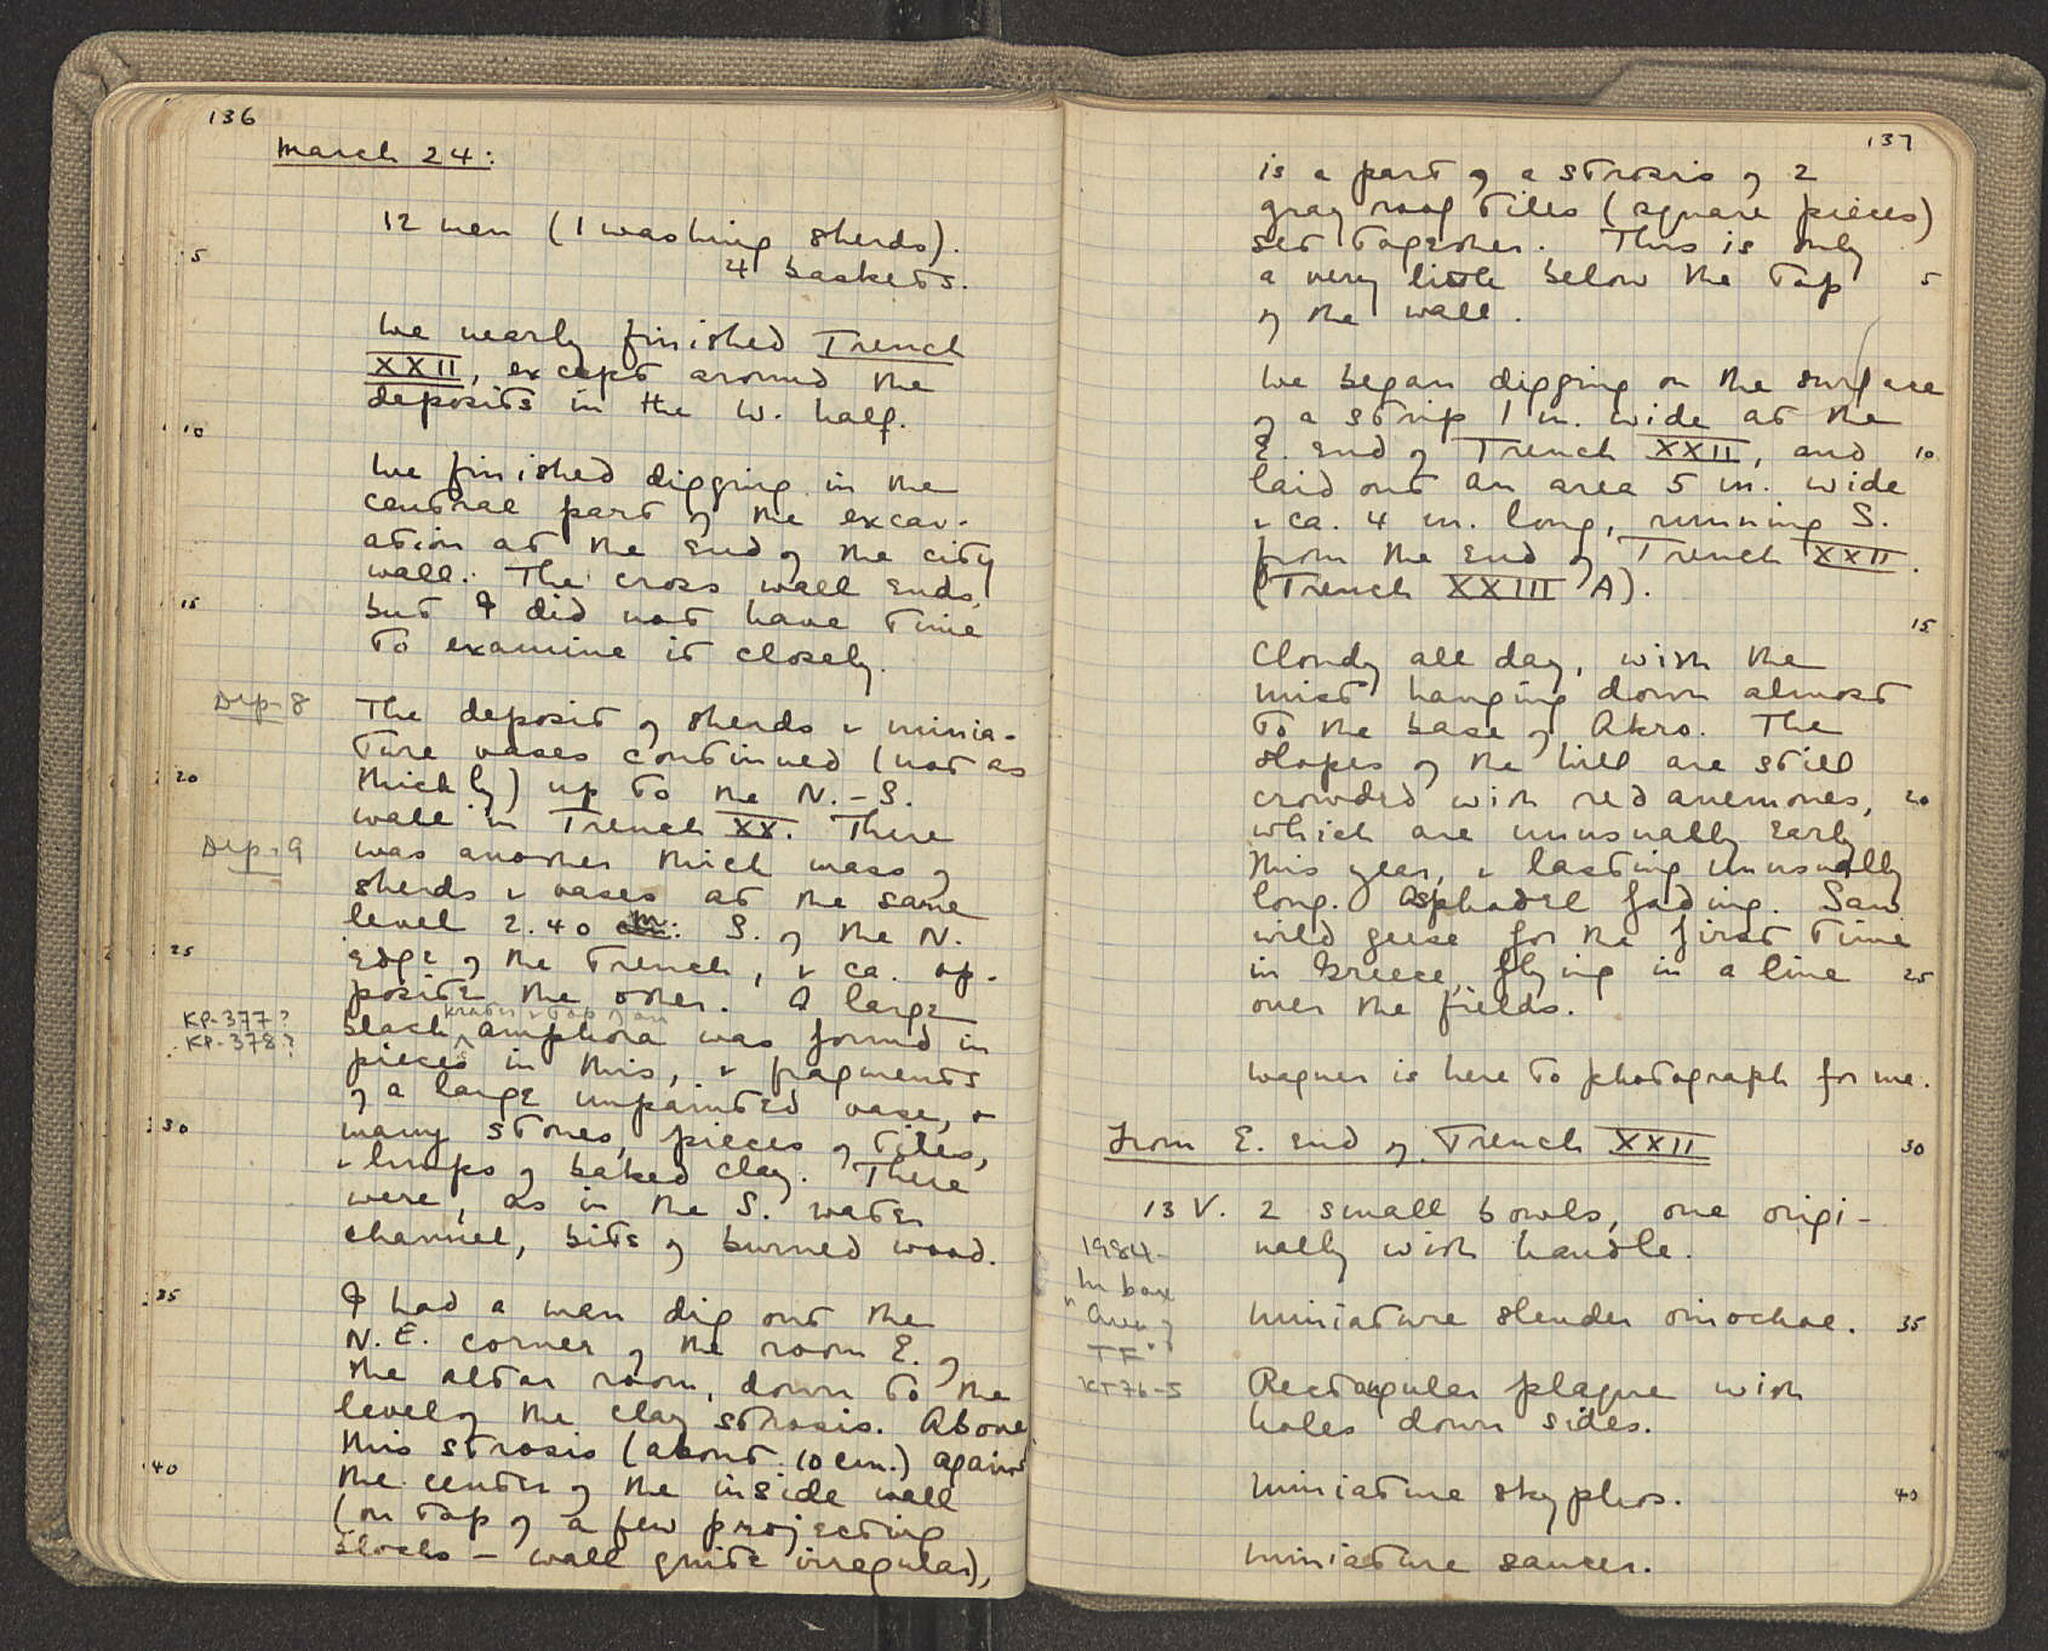 136
March 24:
12 men (1 washing sherds).
5
4 baskets.
We nearly finished Trench
XXII, except around the
deposits in the W. half.
10
We finished digging in the
central part of the excav-
ation at the end of the city
wall. The cross wall ends,
15
but I did not have time
to examine it closely.
Dep. 8
The deposit of sherds & minia-
ture vases continued (not as
20
thickly) up to the N.-S.
wall in Trench XX. There
Dep. 9
was another thick mass of
sherds & vases at the same
level 2.40 m. S. of the N.
25
edge of the trench, & ca. op-
posite the other. A large
KP-377?
krater & top of an
black amphora was found in
KP-378?
pieces in this, & fragments
of a large unpainted vase, &
30
many stones, pieces of tiles,
& lumps of baked clay. There
were, as in the S. water
channel, bits of burned wood.
35
I had a man dig out the
N.E. corner of the room E. of
the altar room, down to the
level of the clay strosis. Above
this strosis (about 10 cm.) against
40
the center of the inside wall
(on top of a few projecting
blocks – wall quite irregular),
137
is a part of a strosis of 2
gray roof tiles (square pieces)
set together. This is only
a very little below the top
5
of the wall.
We began digging on the surface
of a strip 1 m. wide at the
E. end of Trench XXII, and
10
laid out an area 5 m. wide
& ca. 4 m. long, running S.
from the end of Trench XXII.
(Trench XXIII A).
15
Cloudy all day, with the
mist hanging down almost
to the base of Akro. The
slopes of the hill are still
crowded with red anemones,
20
which are unusually early
this year, & lasting unusually
long. Asphodel fading. Saw
wild geese for the first time
in Greece, flying in a line
25
over the fields.
Wagner is here to photograph for me.
From E. end of Trench XXII
30
13 V. 2 small bowls, one origi-
nally with handle.
1984-
In box
"Area of
TF"
Miniature slender oinochoe.
35
KT76-5
Rectangular plaque with
holes down sides.
Miniature skyphos.
40
Miniature saucer.